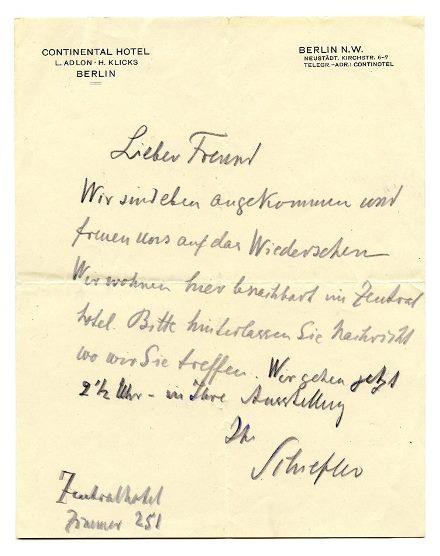 CONTINENTAL HOTEL
L. ADLON · H. KLICKS
BERLIN
BERLIN N.W.
NEUSTÄDT. KIRCHSTR. 6-7
TELEGR.-ADR.: CONTINOTEL
Lieber Freund
Wir sind eben angekommen und
freuen uns auf das Wiedersehen
Wir wohnen hier benachbart im Zentral
hotel. Bitte hinterlassen Sie Nachricht
wo wir Sie treffen. Wir gehen jetzt
2½ Uhr - in Ihre Ausstellung
Ihr
Schiefler
Zentralhotel
Zimmer 251